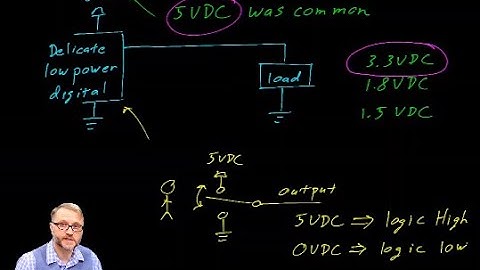 5VDC was common
Delicate
low power
digital
load
3.3VDC
1.8VDC
1.5VDC
5VDC
output
5VDC ⇒ logic High
0VDC ⇒ logic low